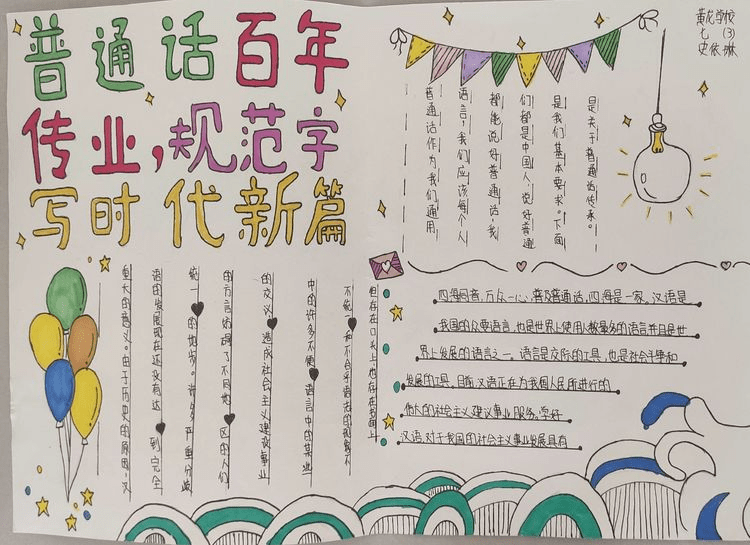 普通话百年
传业,规范字
写时代新篇
黄龙学校
七(3)
史依琳
普通话作为我们通用
语言,我们应该每个人
都能说好普通话,我
们都是中国人,说好普通
是我们基本要求。下面
是关于普通话传承。
四海同音,万众一心,普及普通话,四海是一家,汉语是
我国的众要语言,也是世界上使用人数最多的语言并日是世
界上发展的语言之一,语言是交际的工具,也是社会斗争和
发展的工具,目前汉语正在为我国人民所进行的
伟大的社会主义建议事业服务。学好
汉语对于我国的社会主义事业发展具有
重大的意义。由于历史的原因汉
语的发展现在还没有达到完全
统一的地步。许多严重分歧
的方言妨碍了不同地区的人们
的交谈,造成社会主义建设事业
中的许多不便,语言中的某些
不统一和不合乎语法的现象不
但存在口头上也存在书面上